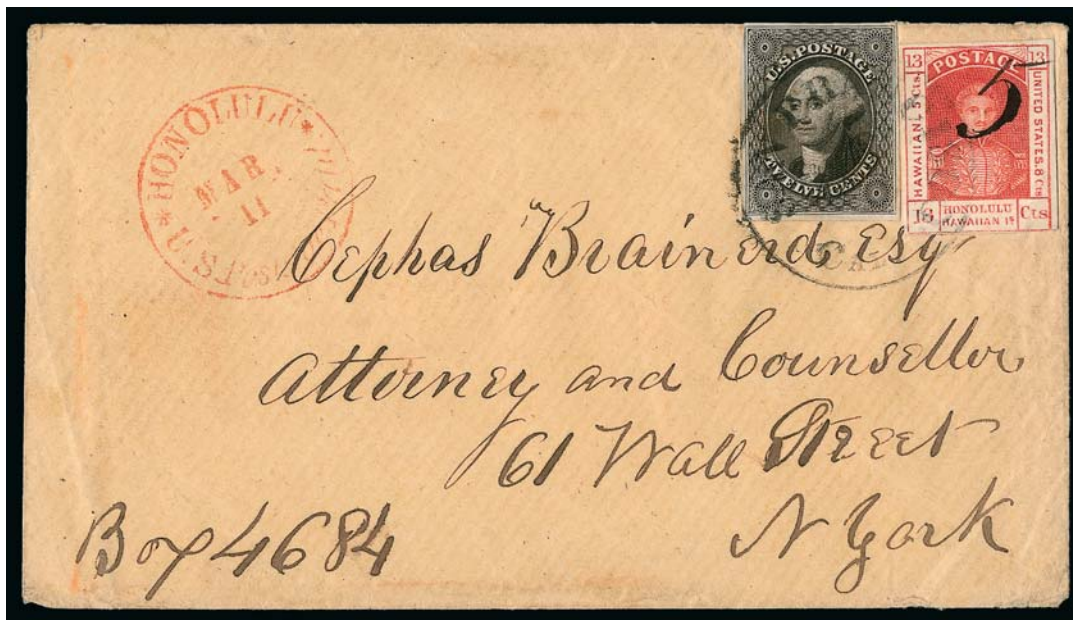 HONOLULU
U.S. Postage Paid
MAR.
11
U.S. POSTAGE
TWELVE CENTS
13 POSTAGE 13
HAWAIIAN. 5 Cts.
UNITED STATES. 8 Cts
5
HONOLULU Cts.
HAWAIIAN Is.
CAL.
Cephas Brainerd, Esq
Attorney and Counsellor
61 Wall Street
N York
Box 4684